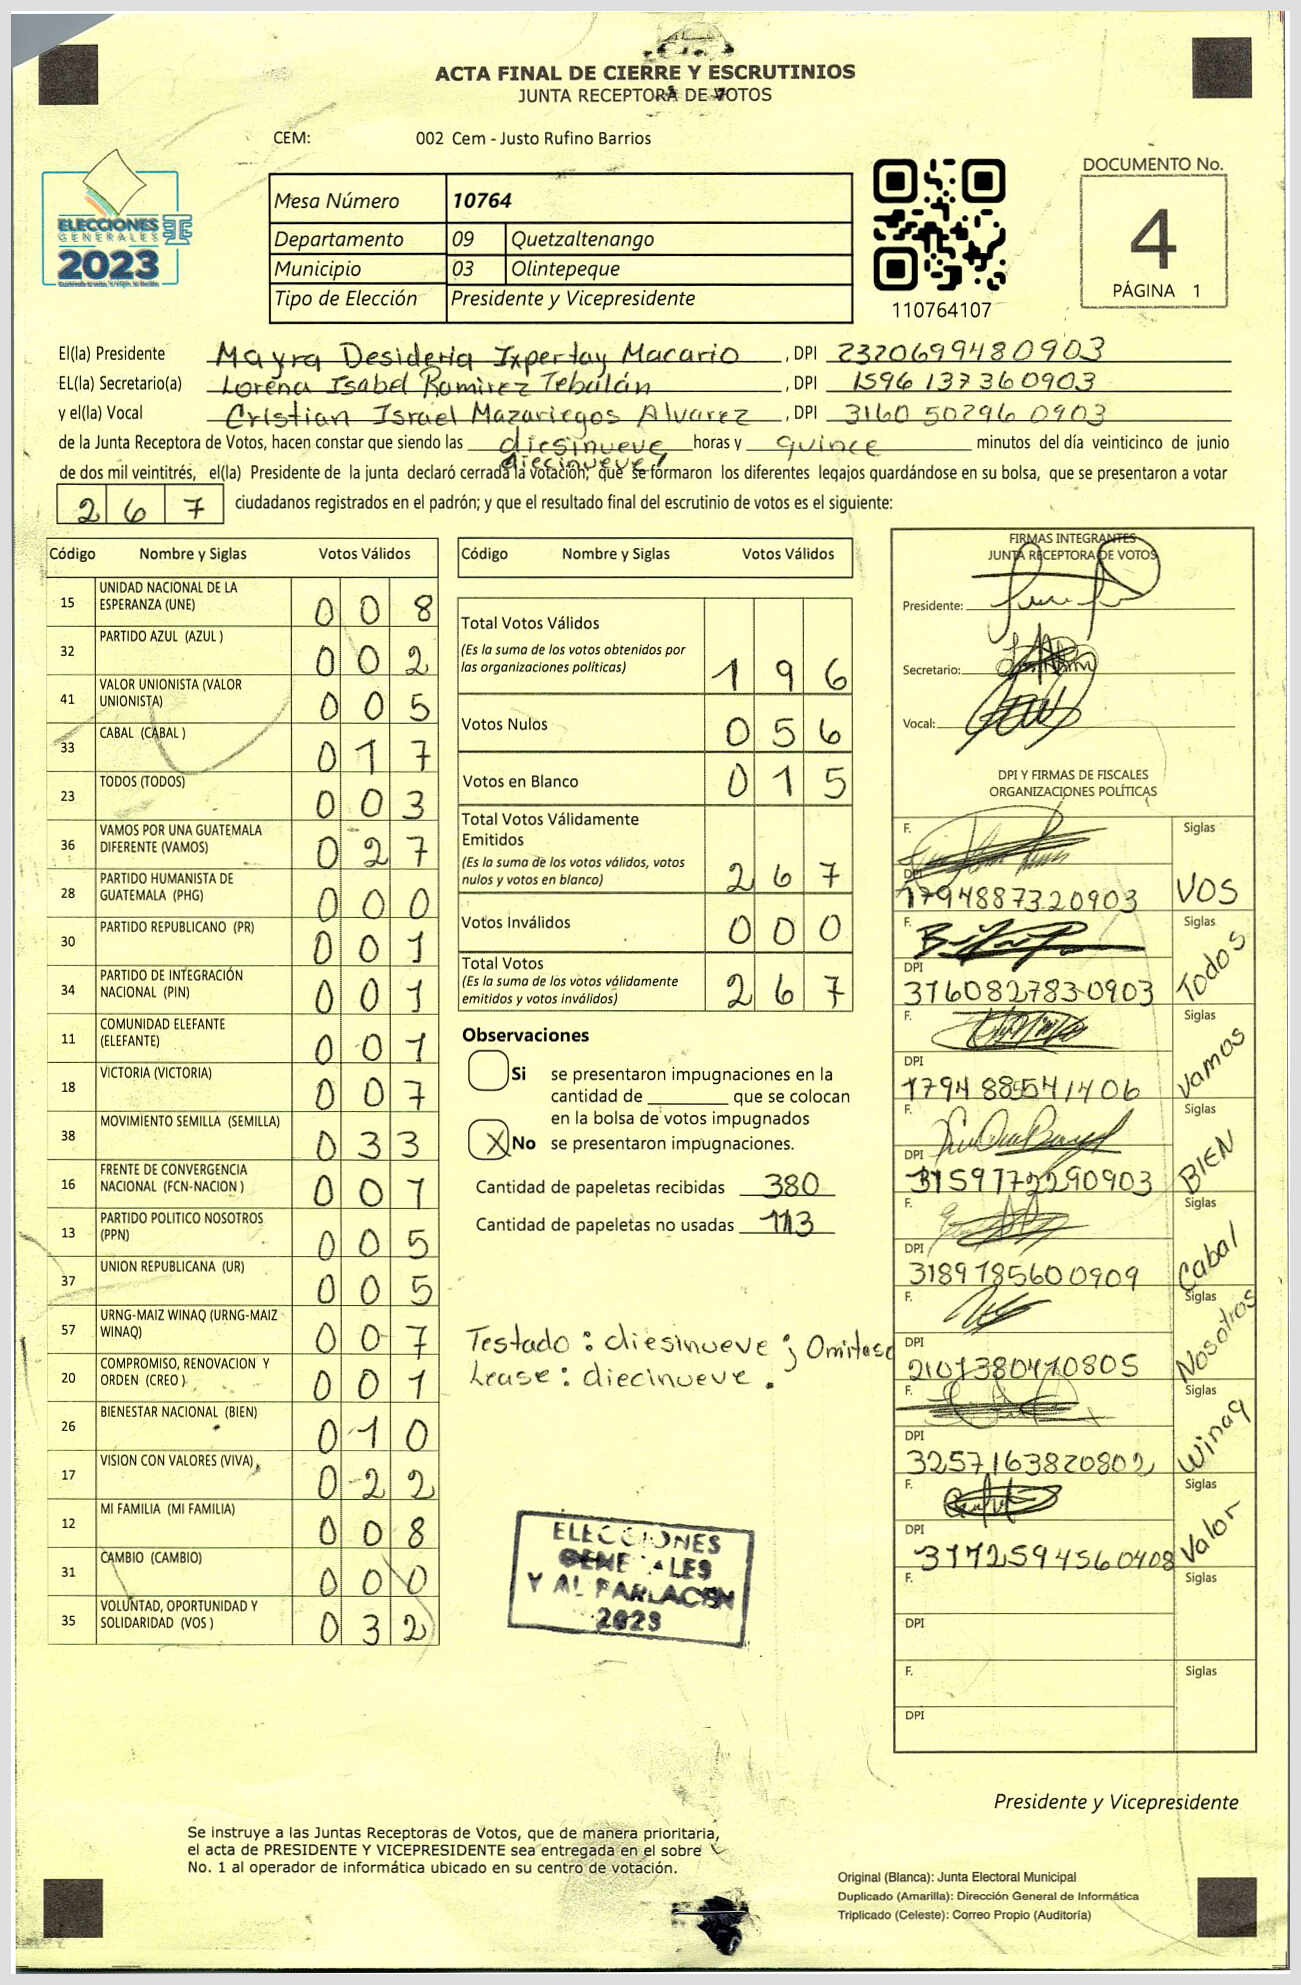 ACTA FINAL DE CIERRE Y ESCRUTINIOS
JUNTA RECEPTORA DE VOTOS
CEM: 002 Cem - Justo Rufino Barrios
ELECCIONES
GENERALES
2023
Mesa Número 10764
Departamento 09 Quetzaltenango
Municipio 03 Olintepeque
Tipo de Elección Presidente y Vicepresidente
110764107
DOCUMENTO No.
4
PÁGINA 1
El(la) Presidente Mayra Desideria Ixpertay Macario , DPI 2320699480903
EL(la) Secretario(a) Lorena Isabel Ramirez Tebalán , DPI 1596137360903
y el(la) Vocal Cristian Israel Mazariegos Alvarez , DPI 3160502960903
de la Junta Receptora de Votos, hacen constar que siendo las diesinueve horas y quince minutos del día veinticinco de junio
diecinueve
de dos mil veintitrés, el(la) Presidente de la junta declaró cerrada la votación; que se formaron los diferentes legajos guardándose en su bolsa, que se presentaron a votar
267 ciudadanos registrados en el padrón; y que el resultado final del escrutinio de votos es el siguiente:
Código Nombre y Siglas Votos Válidos
15 UNIDAD NACIONAL DE LA ESPERANZA (UNE) 008
32 PARTIDO AZUL (AZUL ) 002
41 VALOR UNIONISTA (VALOR UNIONISTA) 005
33 CABAL (CABAL ) 017
23 TODOS (TODOS) 003
36 VAMOS POR UNA GUATEMALA DIFERENTE (VAMOS) 027
28 PARTIDO HUMANISTA DE GUATEMALA (PHG) 000
30 PARTIDO REPUBLICANO (PR) 001
34 PARTIDO DE INTEGRACIÓN NACIONAL (PIN) 001
11 COMUNIDAD ELEFANTE (ELEFANTE) 001
18 VICTORIA (VICTORIA) 007
38 MOVIMIENTO SEMILLA (SEMILLA) 033
16 FRENTE DE CONVERGENCIA NACIONAL (FCN-NACION ) 001
13 PARTIDO POLITICO NOSOTROS (PPN) 005
37 UNION REPUBLICANA (UR) 005
57 URNG-MAIZ WINAQ (URNG-MAIZ WINAQ) 007
20 COMPROMISO, RENOVACION Y ORDEN (CREO ) 001
26 BIENESTAR NACIONAL (BIEN) 010
17 VISION CON VALORES (VIVA) 022
12 MI FAMILIA (MI FAMILIA) 008
31 CAMBIO (CAMBIO) 000
35 VOLUNTAD, OPORTUNIDAD Y SOLIDARIDAD (VOS ) 032
Código Nombre y Siglas Votos Válidos
Total Votos Válidos 196
(Es la suma de los votos obtenidos por
las organizaciones políticas)
Votos Nulos 056
Votos en Blanco 015
Total Votos Válidamente
Emitidos 267
(Es la suma de los votos válidos, votos
nulos y votos en blanco)
Votos Inválidos 000
Total Votos 267
(Es la suma de los votos válidamente
emitidos y votos inválidos)
Observaciones
Si se presentaron impugnaciones en la
cantidad de ________ que se colocan
en la bolsa de votos impugnados
X No se presentaron impugnaciones.
Cantidad de papeletas recibidas 380
Cantidad de papeletas no usadas 113
Testado : diesinueve ; Omitase
Lease : diecinueve .
ELECCIONES
GENERALES
Y AL PARLACEN
2023
FIRMAS INTEGRANTES
JUNTA RECEPTORA DE VOTOS
Presidente:
Secretario:
Vocal:
DPI Y FIRMAS DE FISCALES
ORGANIZACIONES POLÍTICAS
F. Siglas
DPI 1794887320903 VOS
F. Siglas
DPI 3160827830903 Todos
F. Siglas
DPI 1794885541406 Vamos
F. Siglas
DPI 3159172290903 BIEN
F. Siglas
DPI 3189785600909 Cabal
F. Siglas
DPI 2101380470805 Nosotros
F. Siglas
DPI 3257163820802 Winaq
F. Siglas
DPI 3172594560408 Valor
F. Siglas
DPI
F. Siglas
DPI
Presidente y Vicepresidente
Se instruye a las Juntas Receptoras de Votos, que de manera prioritaria,
el acta de PRESIDENTE Y VICEPRESIDENTE sea entregada en el sobre
No. 1 al operador de informática ubicado en su centro de votación.
Original (Blanca): Junta Electoral Municipal
Duplicado (Amarilla): Dirección General de Informática
Triplicado (Celeste): Correo Propio (Auditoría)